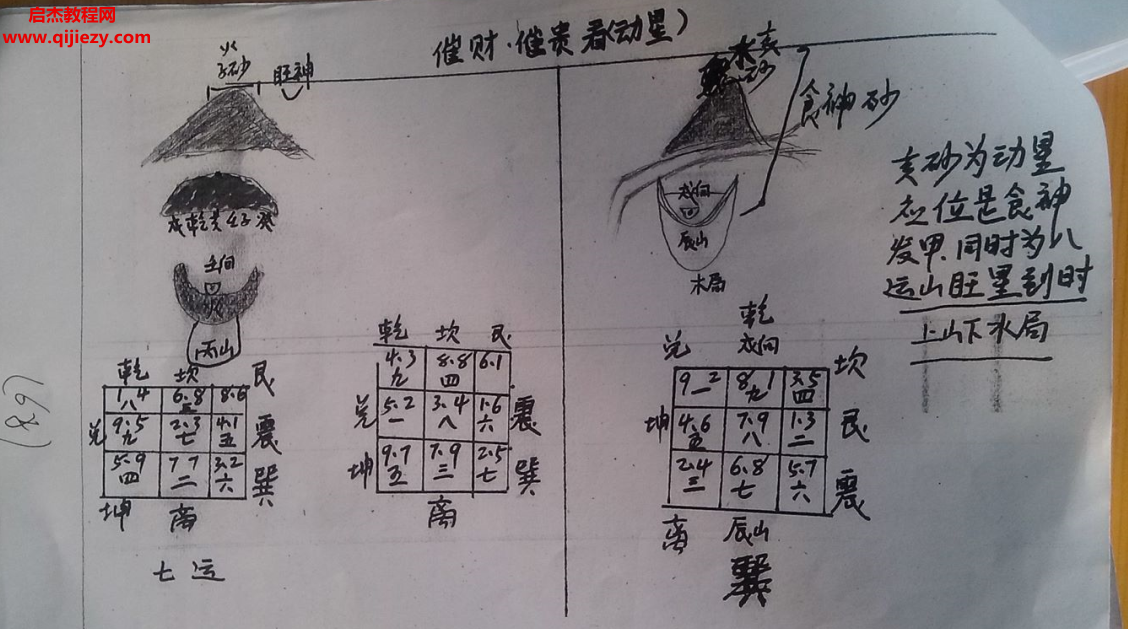 启杰教程网
www.qijiezy.com
催财·催贵看(动星)
火
子砂
旺神
戌乾亥壬子癸
壬向
丙山
乾 坎 艮
1.4 6.8 8.6
八 三
兑 9.5 2.3 4.1 震
九 七 五
5.9 7.7 3.2 巽
四 二 六
坤 离
七运
乾 坎 艮
4.3 8.8 6.1
九 四
兑 5.2 3.4 1.6 震
一 八 六
坤 9.7 7.9 2.5 巽
五 三 七
离
水亥
砂
食神砂
戌向
辰山
木局
乾
兑 戌向 坎
9 2 8 1 3.5
一 九 四
坤 4.6 7.9 1.3 艮
五 八 二
2.4 6.8 5.7 震
三 七 六
离 辰山
巽
亥砂为动星
在位是食神
发甲.同时为八
运山旺星到时
上山下水局
(89)